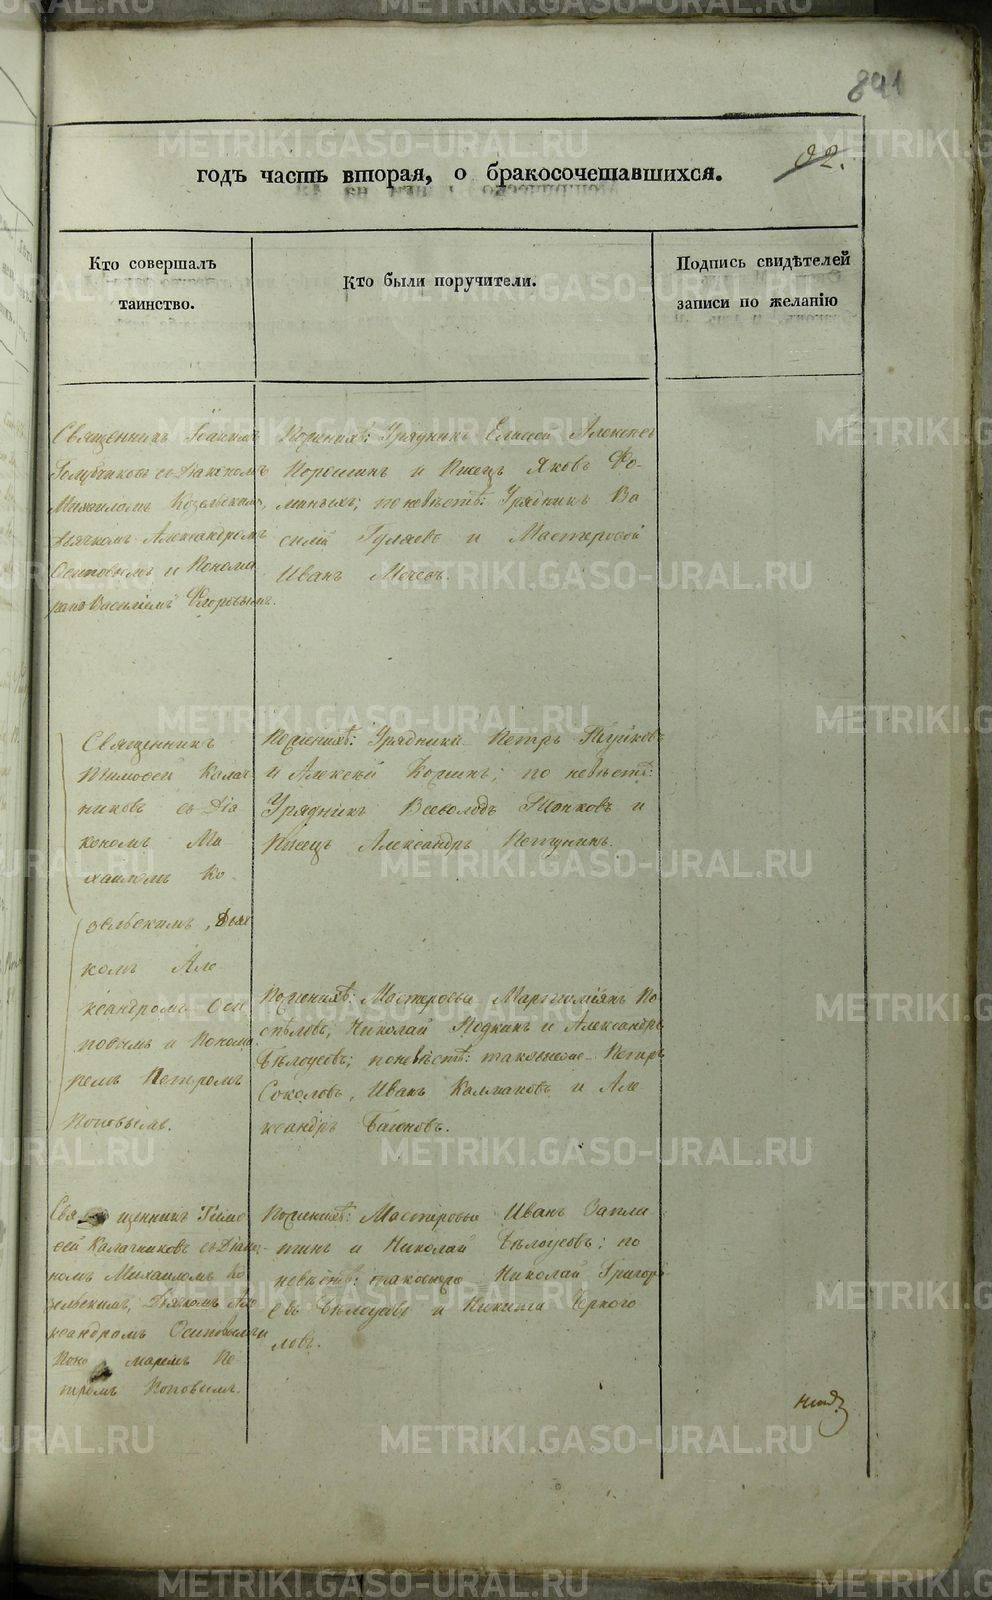 841
92.
годъ часть вторая, о бракосочетавшихся.
Кто совершалъ
таинство.
Кто были поручители.
Подпись свидѣтелей
записи по желанію
Священникъ Іоакимъ
Голубчиковъ съ Діакономъ
Михаиломъ Козельскимъ,
дьячкомъ Александромъ
Осиповымъ и Понома
ремъ Василіемъ Флоровымъ.
По женихѣ: Урядникъ Елисей Алексѣев
и Писецъ Яковъ Фо-
миныхъ; по невѣстѣ: Урядникъ Ва
силій Гуляевъ и Мастеровой
Иванъ
Священникъ
Тимофей Калач
никовъ съ Діа
кономъ Ми
хаиломъ Ко
зельскимъ, Дьяч
комъ Але
ксандромъ Оси
повымъ и Понома
ремъ Петромъ
Поповымъ.
По женихѣ: Урядники Петръ
и Алексѣй; по невѣстѣ:
Урядникъ Всеволодъ Топковъ и
Писецъ Александръ Петунинъ.
По женихѣ: Мастеровые Мартиміянъ По
спѣловъ, Николай и Александръ
Бѣлоусовъ; по невѣстѣ: таковые же Петръ
Соколовъ, Иванъ Колмаковъ и Але
ксандръ Баженовъ.
Свя щенникъ Тимо
фей Калачниковъ съ Діако
номъ Михаиломъ Ко
зельскимъ, Дьячкомъ Але
ксандромъ Осиповымъ и
Поно маремъ Пе
тромъ Поповымъ.
По женихѣ: Мастеровые Иванъ Запла
тинъ и Николай Бѣлоусовъ; по
невѣстѣ: таковые же Николай Григорі
евъ Бѣлоусовъ и Никита Беркого
ловъ.
METRIKI.GASO-URAL.RU